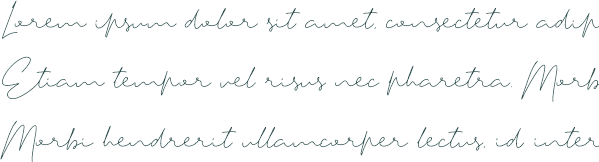 Lorem ipsum dolor sit amet, consectetur adip
Etiam tempor vel risus nec pharetra. Morb
Morbi hendrerit ullamcorper lectus, id inter